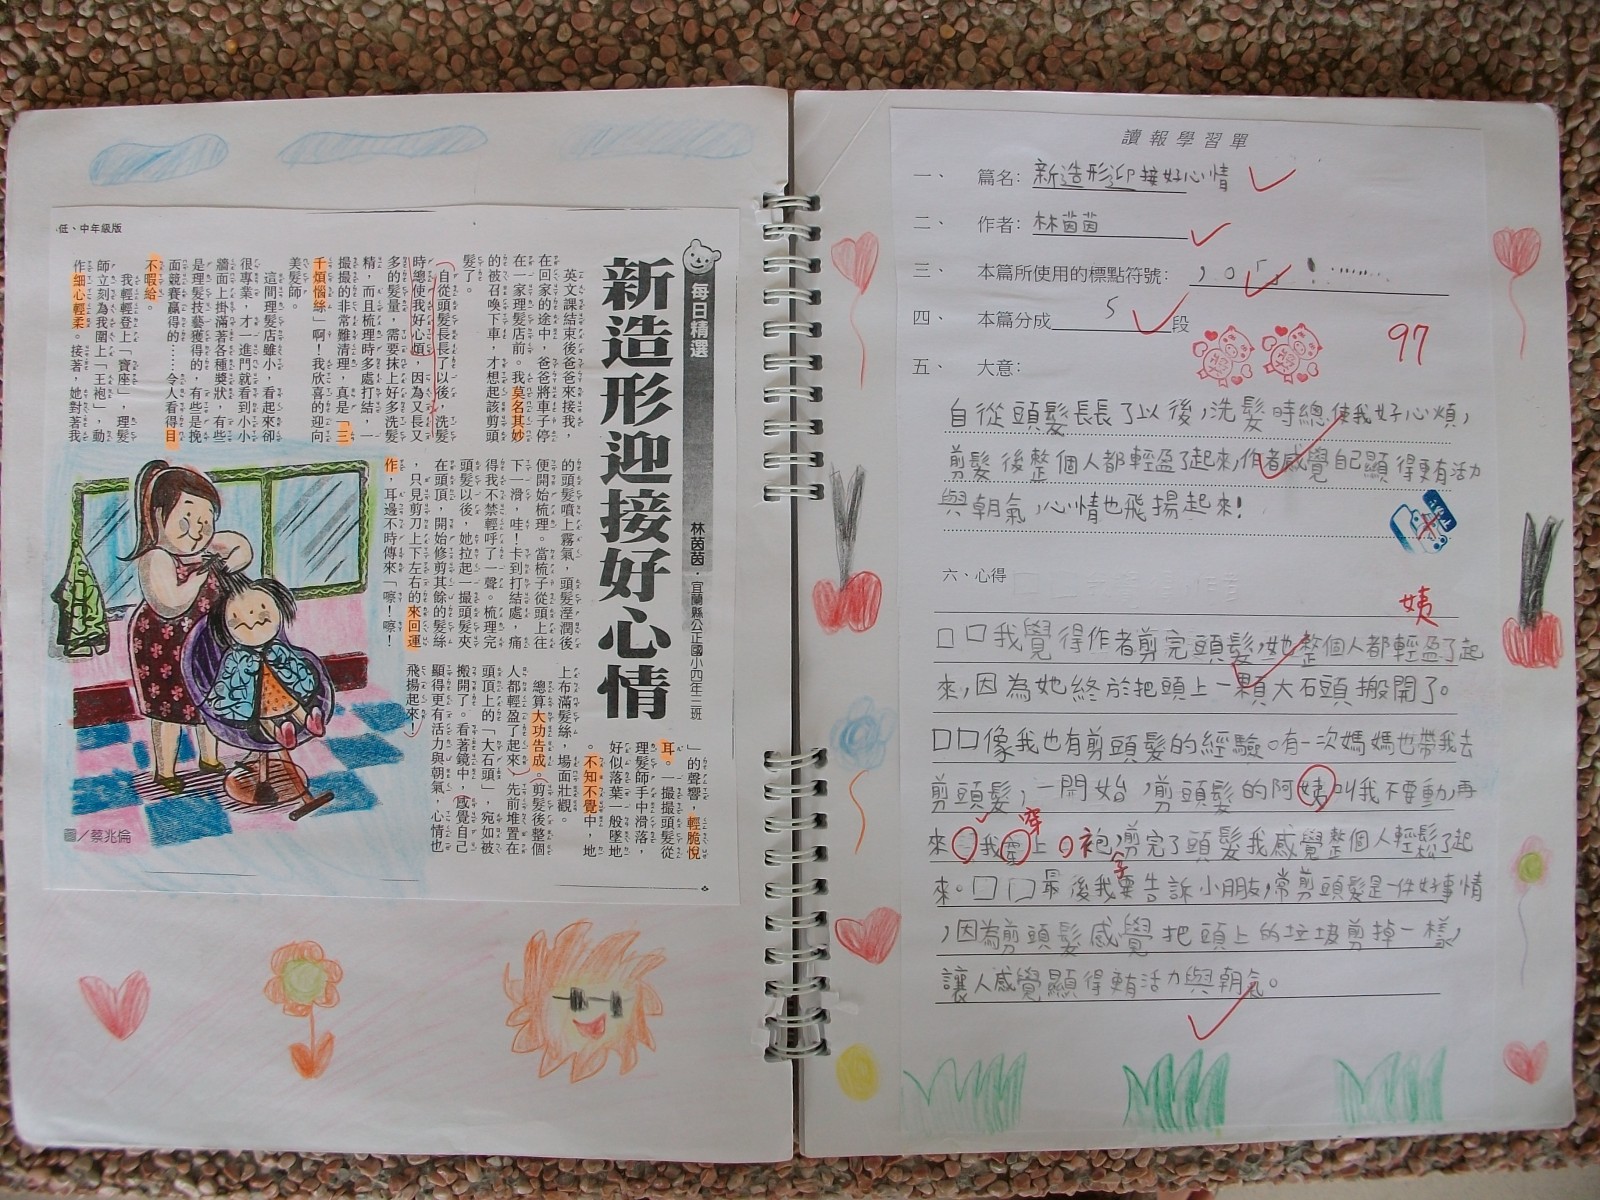 低、中年級版
每日精選
新造形迎接好心情
林茵茵．宜蘭縣公正國小四年三班
英文課結束後爸爸來接我，
在回家的途中，爸爸將車子停
在一家理髮店前，我莫名其妙
的被召喚下車，才想起該剪頭
髮了。
自從頭髮長長了以後，洗髮
時總使我好心煩，因為又長又
多的髮量，需要抹上好多洗髮
精，而且梳理時多處打結，一
撮撮的非常難清理，真是「三
千煩惱絲」啊！我欣喜的迎向
美髮師。
這間理髮店雖小，看起來卻
很專業，才一進門就看到小小
牆面上掛滿著各種獎狀，有些
是理髮技藝獲得的，有些是挽
面競賽贏得的……令人看得目
不暇給。
我輕輕登上「寶座」，理髮
師立刻為我圍上「王袍」，動
作細心輕柔。接著，她對著我
的頭髮噴上霧氣，頭髮溼潤後
便開始梳理。當梳子從頭上往
下一滑，哇！卡到打結處，痛
得我不禁輕呼了一聲。梳理完
頭髮以後，她拉起一撮頭髮夾
在頭頂，開始修剪其餘的髮絲
，只見剪刀上下左右的來回運
作，耳邊不時傳來「嚓！嚓！
」的聲響，輕脆悅
耳。一撮撮頭髮從
理髮師手中滑落，
好似落葉一般墜地
。不知不覺中，地
上布滿髮絲，場面壯觀。
總算大功告成。剪髮後整個
人都輕盈了起來，先前堆置在
頭頂上的「大石頭」，宛如被
搬開了。看著鏡中，感覺自己
顯得更有活力與朝氣，心情也
飛揚起來！
圖／蔡兆倫
讀報學習單
一、 篇名：新造形迎接好心情
二、 作者：林茵茵
三、 本篇所使用的標點符號：，。「」！……
四、 本篇分成 5 段
97
五、 大意：
自從頭髮長長了以後，洗髮時總使我好心煩，
剪髮後整個人都輕盈了起來，作者感覺自己顯得更有活力
與朝氣，心情也飛揚起來！
六、心得
姨
□□我覺得作者剪完頭髮，她整個人都輕盈了起
來，因為她終於把頭上一顆大石頭搬開了。
□□像我也有剪頭髮的經驗。有一次媽媽也帶我去
剪頭髮，一開始，剪頭髮的阿姨叫我不要動，再
穿
來我上袍，剪完了頭髮我感覺整個人輕鬆了起
來。□□最後我要告訴小朋友，常剪頭髮是一件好事情
，因為剪頭髮感覺把頭上的垃圾剪掉一樣，
讓人感覺顯得更有活力與朝氣。